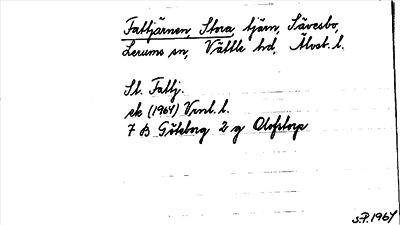 Fattjärnen, Stora, tjärn, Sävesbo,
Lerums sn, Vättle hd, Älvsb. l.
St. Fattj.
ek (1964) Vrml. l.
7 B Göteborg 2 g Olofstorp
S.P. 1964